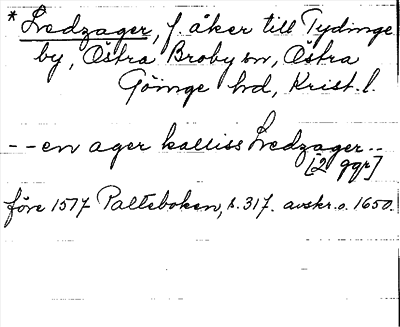 * Ledzager, f. åker till Tydinge
by, Östra Broby sn, Östra
Göinge hd, Krist. l.
- - en ager kalliss Ledzager - -
[2 ggr]
före 1517 Palteboken, s. 317. avskr. o. 1650.